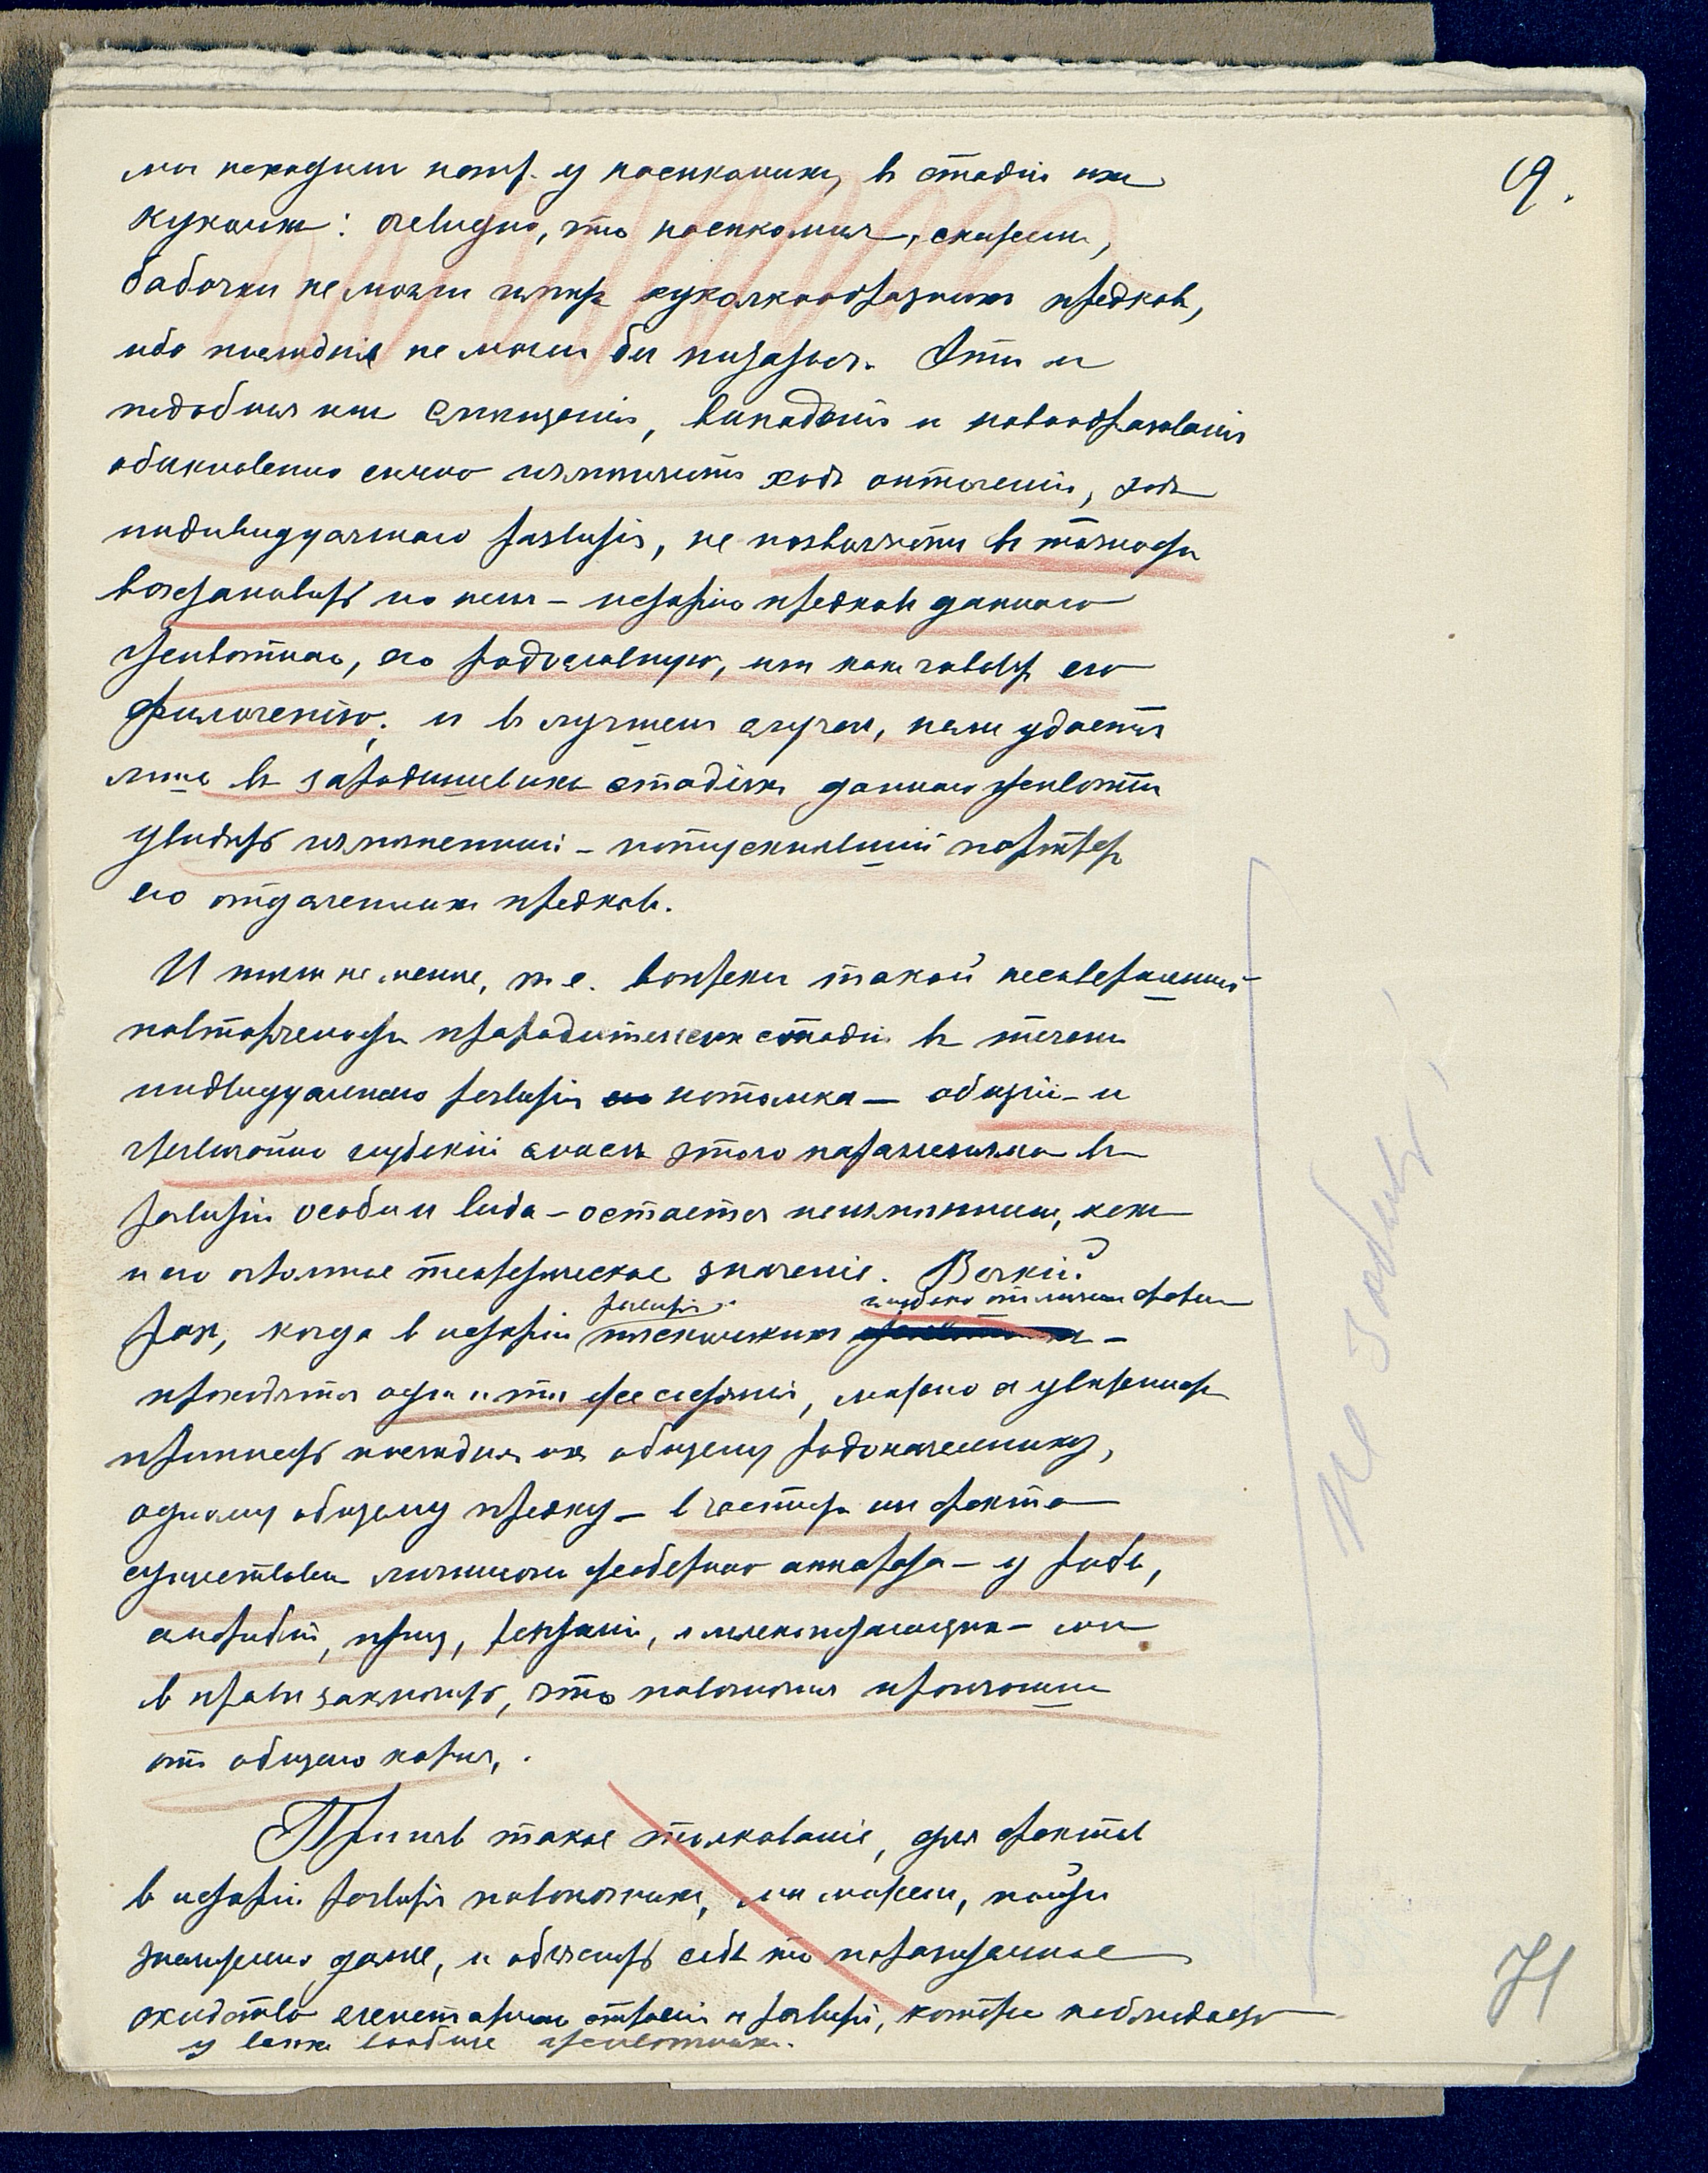 9.
мы находим напр. у насекомых, в стадии их
куколки: очевидно, что насекомыя, скажем,
бабочки не могли иметь куколкообразных предков,
ибо последния не могли бы питаться. Эти и
подобныя им смещения, выпадения и новообразования
обыкновенно сильно изменяют ход онтогении, ход
индивидуальнаго развития, не позволяют в точности
возстановить по нем – историю предков даннаго
животнаго, его родословную, или как говорят его
филогению; и в лучшем случае, нам удается
лишь в зародышевых стадиях даннаго животн
увидеть измененный – потускневший портрет
его отдаленных предков.
И тем не менее, т.е. вопреки такой несовершенной
повторяемости прародительских стадий в течении
индивидуальнаго развития потомка – общий – и
чрезвычайно глубокий смысл этого параллелизма в
развитии особи и вида – остается неизменным, как
и его огромное теоретическое значение. Всякий
развития
глубоко отличных форм
раз, когда в истории
проходятся одни и те же стадии, можно с уверенностью
причислить последния их общему родоначальнику,
одному общему предку – в частности из факта
существования личиночн жаберного аппарата – у рыб,
амфибий, птиц, рептилий, и млекопитающих – мы
в праве заключить, что позвоночныя произошли
от общаго корня,.
Приняв такое толкование, для фактов
в истории развития позвоночных, мы можем, пойти
значительно далее, и объяснить себе то поразительное
сходство элементарных стадий в развитии, которое наблюдается
у всех вообще животных.
Не говорить!
71